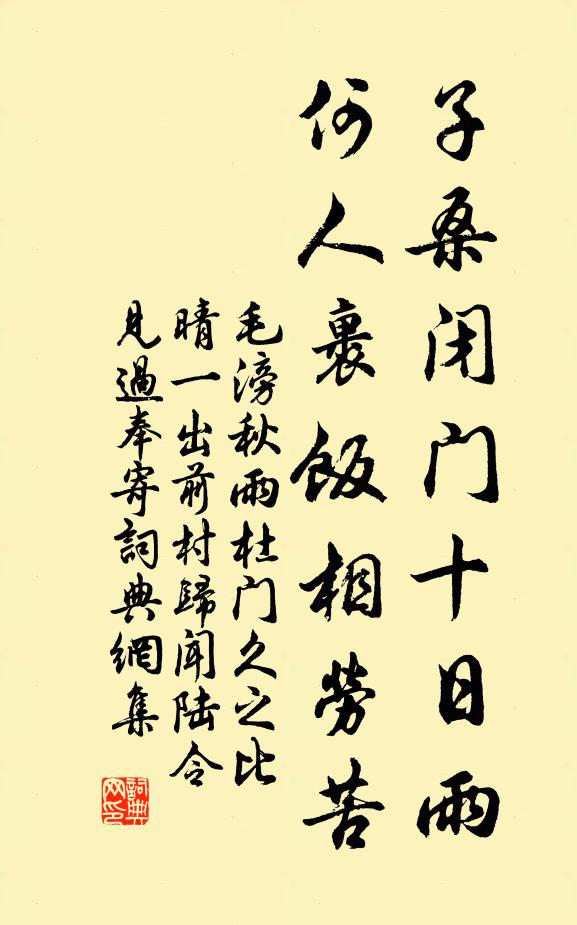 子桑闭门十日雨
何人裹飯相勞苦
毛滂秋雨杜门久之比
晴一出前村歸闻陆令
見過奉寄詞典網集
詞典
网印